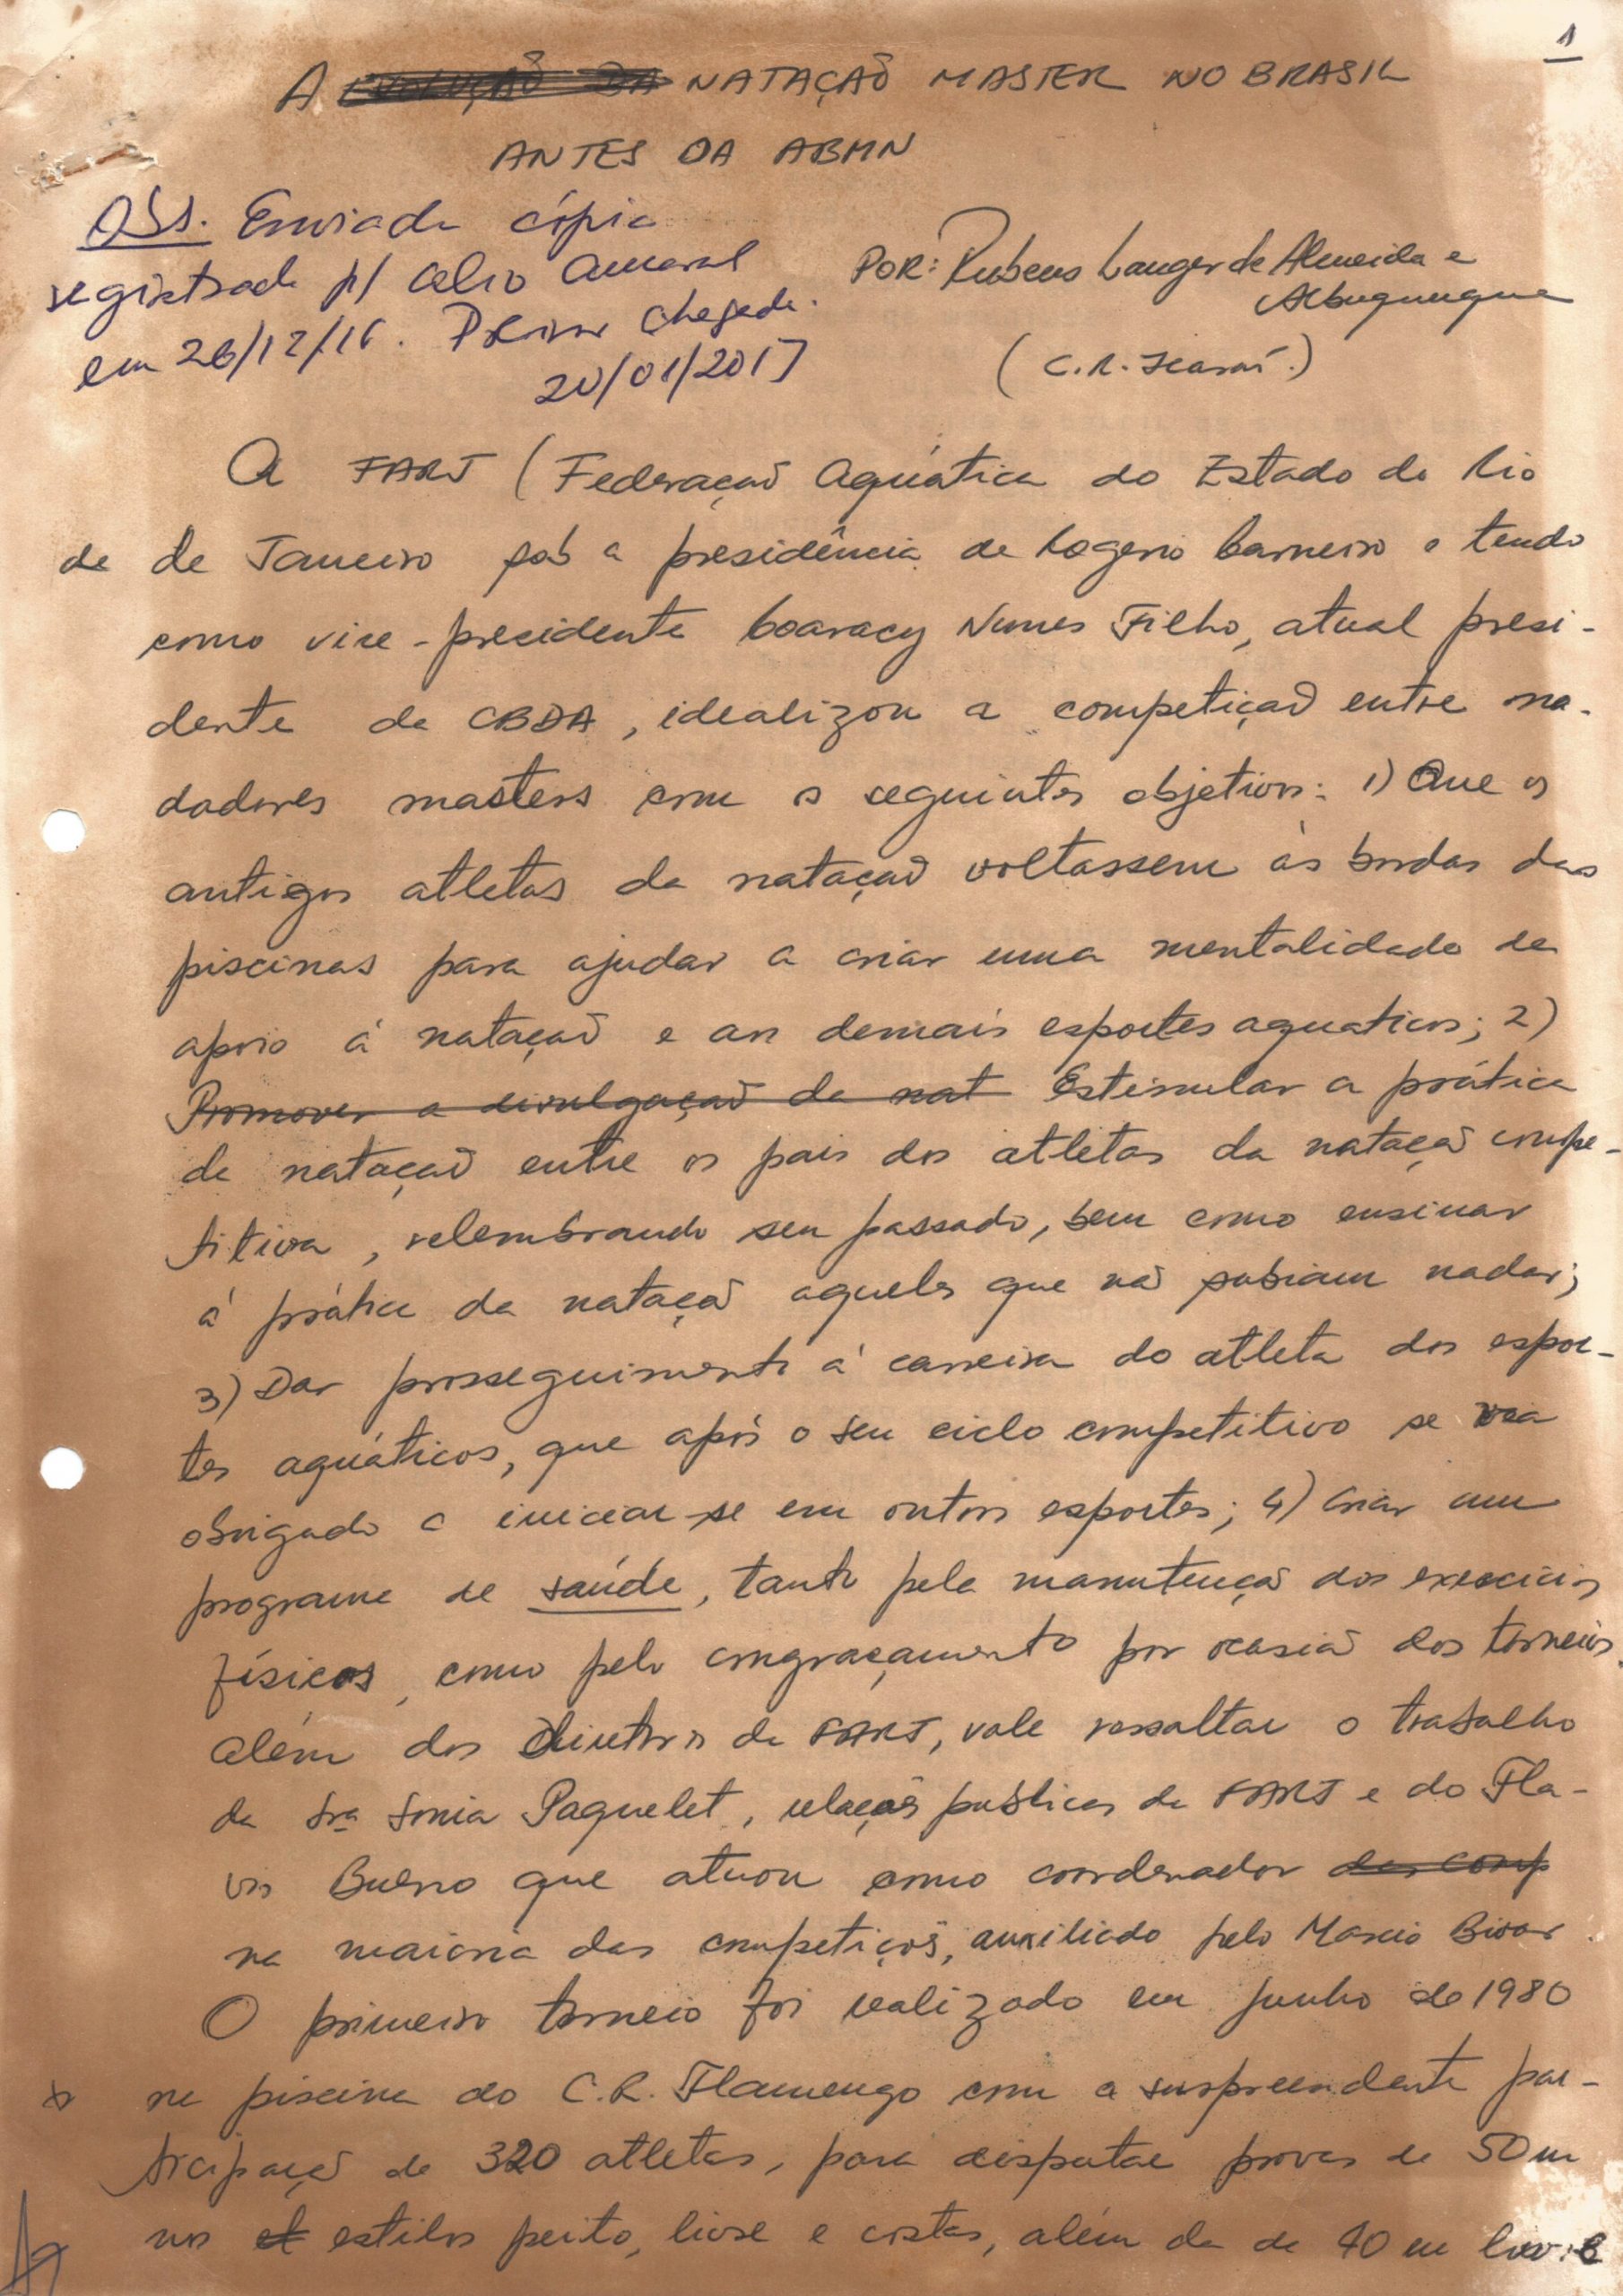 1
A EVOLUÇÃO DA NATAÇÃO MASTER NO BRASIL
ANTES DA ABMN
OBS. Enviada cópia
registrada p/ Celio Amaral
em 26/12/16. Previsão chegada.
20/01/2017
POR: Rubens Langer de Almeida e
Albuquerque
(C.R. Icaraí.)
A FARJ (Federação Aquática do Estado do Rio
de de Janeiro sob a presidência de Rogerio Carneiro e tendo
como vice-presidente Coaracy Nunes Filho, atual presi-
dente da CBDA, idealizou a competição entre na-
dadores masters com os seguintes objetivos: 1) Que os
antigos atletas da natação voltassem às bordas das
piscinas para ajudar a criar uma mentalidade de
apoio á natação e aos demais esportes aquaticos; 2)
Promover a divulgação da nat Estimular a prática
de natação entre os pais dos atletas da natação compe-
titiva, relembrando seu passado, bem como ensinar
á prática da natação aqueles que não sabiam nadar;
3) Dar prosseguimento á carreira do atleta dos espor-
tes aquáticos, que após o seu ciclo competitivo se via
obrigado a iniciar-se em outros esportes; 4) Criar um
programa de saúde, tanto pela manutenção dos exercícios
físicos, como pelo congraçamento por ocasião dos torneios.
Além dos Diretores da FARJ, vale ressaltar o trabalho
da Sra Sonia Paquelet, relações públicas da FARJ e do Flá-
vio Bueno que atuou como coordenador das comp
na maioria das competições, auxiliado pelo Marcio Bivar.
O primeiro torneio foi realizado em junho de 1980
na piscina do C.R. Flamengo com a surpreendente par-
ticipação de 320 atletas, para disputar provas de 50m
nos et estilos peito, livre e costas, além da de 40 m livre